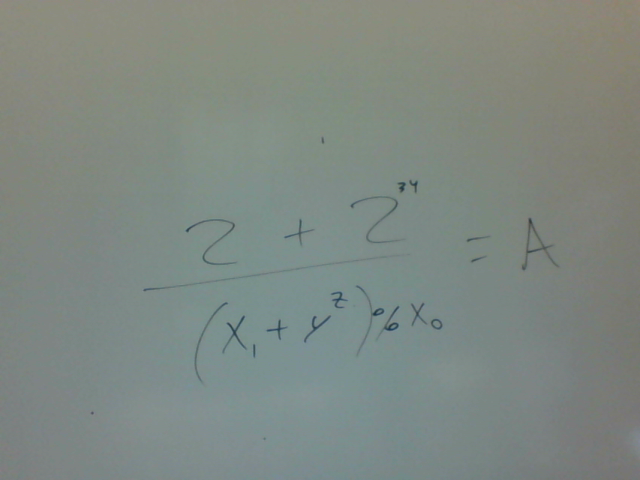 2 + 2³⁴
= A
(X₁ + y^z)%X₀